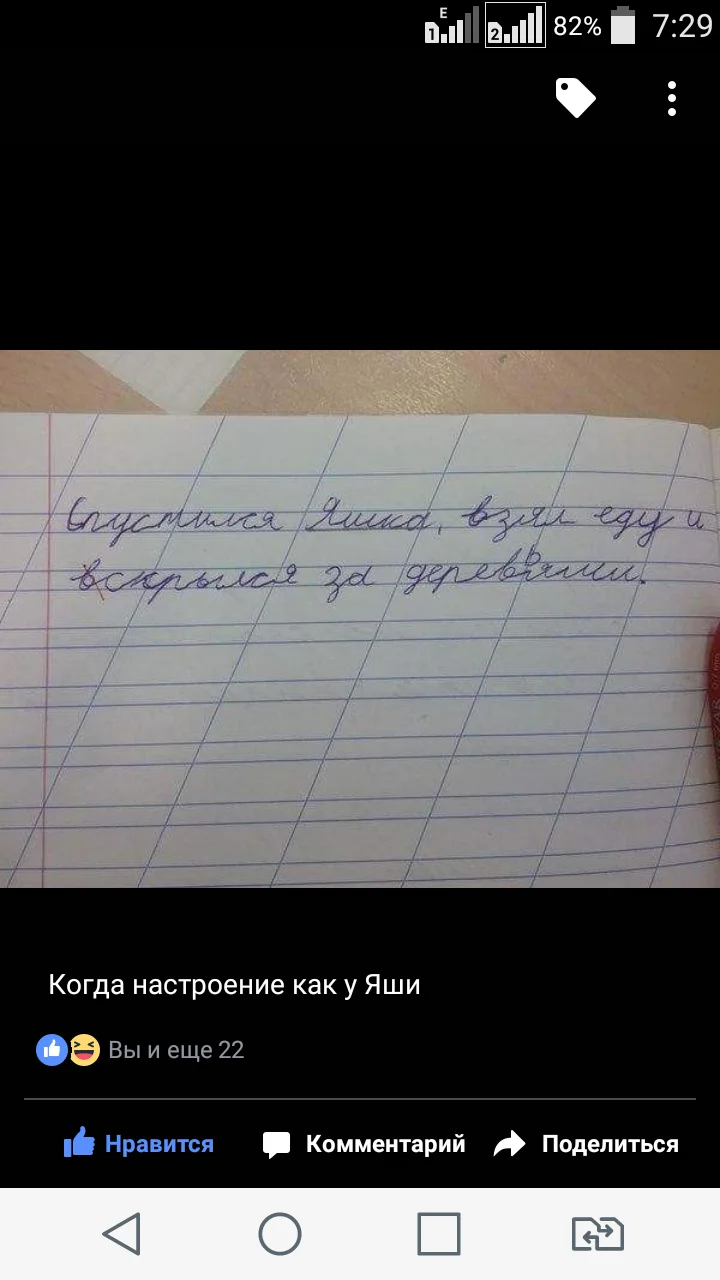 E
1 2 82% 7:29
Спустился Яшка, взял еду и
вскрылся за деревьями.
Когда настроение как у Яши
Вы и еще 22
Нравится Комментарий Поделиться